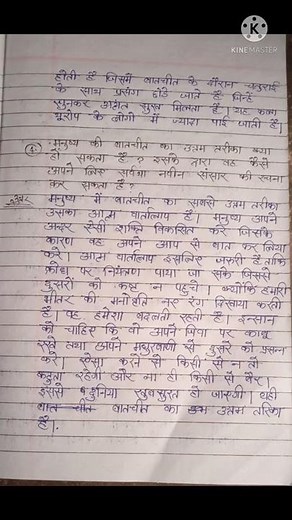 KINEMASTER
होती है जिसमें बातचीत के दौरान चतुराई
के साथ प्रसंग छोड़े जाते हैं जिन्हें
सुनकर अत्यंत सुख मिलता है। यह कला
यूरोप के लोगों में ज्यादा पाई जाती है।
मनुष्य की बातचीत का उत्तम तरीका क्या
हो सकता है? इसके द्वारा वह कैसे
अपने लिए सर्वथा नवीन संसार की रचना
कर सकता है?
उत्तर मनुष्य में बातचीत का सबसे उत्तम तरीका
उसका आत्म वार्तालाप है। मनुष्य अपने
अन्दर ऐसी शक्ति विकसित करे जिसके
कारण वह अपने आप से बात कर लिया
करे। आत्म वार्तालाप इसलिए जरूरी है ताकि
क्रोध पर नियंत्रण पाया जा सके जिससे
दूसरों को कष्ट न पहुंचे। क्योंकि हमारी
भीतर की मनोवृति नए रंग दिखाया करती
है। वह हमेशा बदलती रहती है। इन्सान
को चाहिए कि वो अपने जिवा पर काबू
रखे तथा अपने मधुरवाणी से दुसरे को प्रसन्न
करे। ऐसा करने से किसी से न तो
कटुता रहेगी और ना ही किसी से बैर।
इससे दुनिया खुबसुरत हो जाएगी। यही
बातचीत का उत्तम तरिका
है।